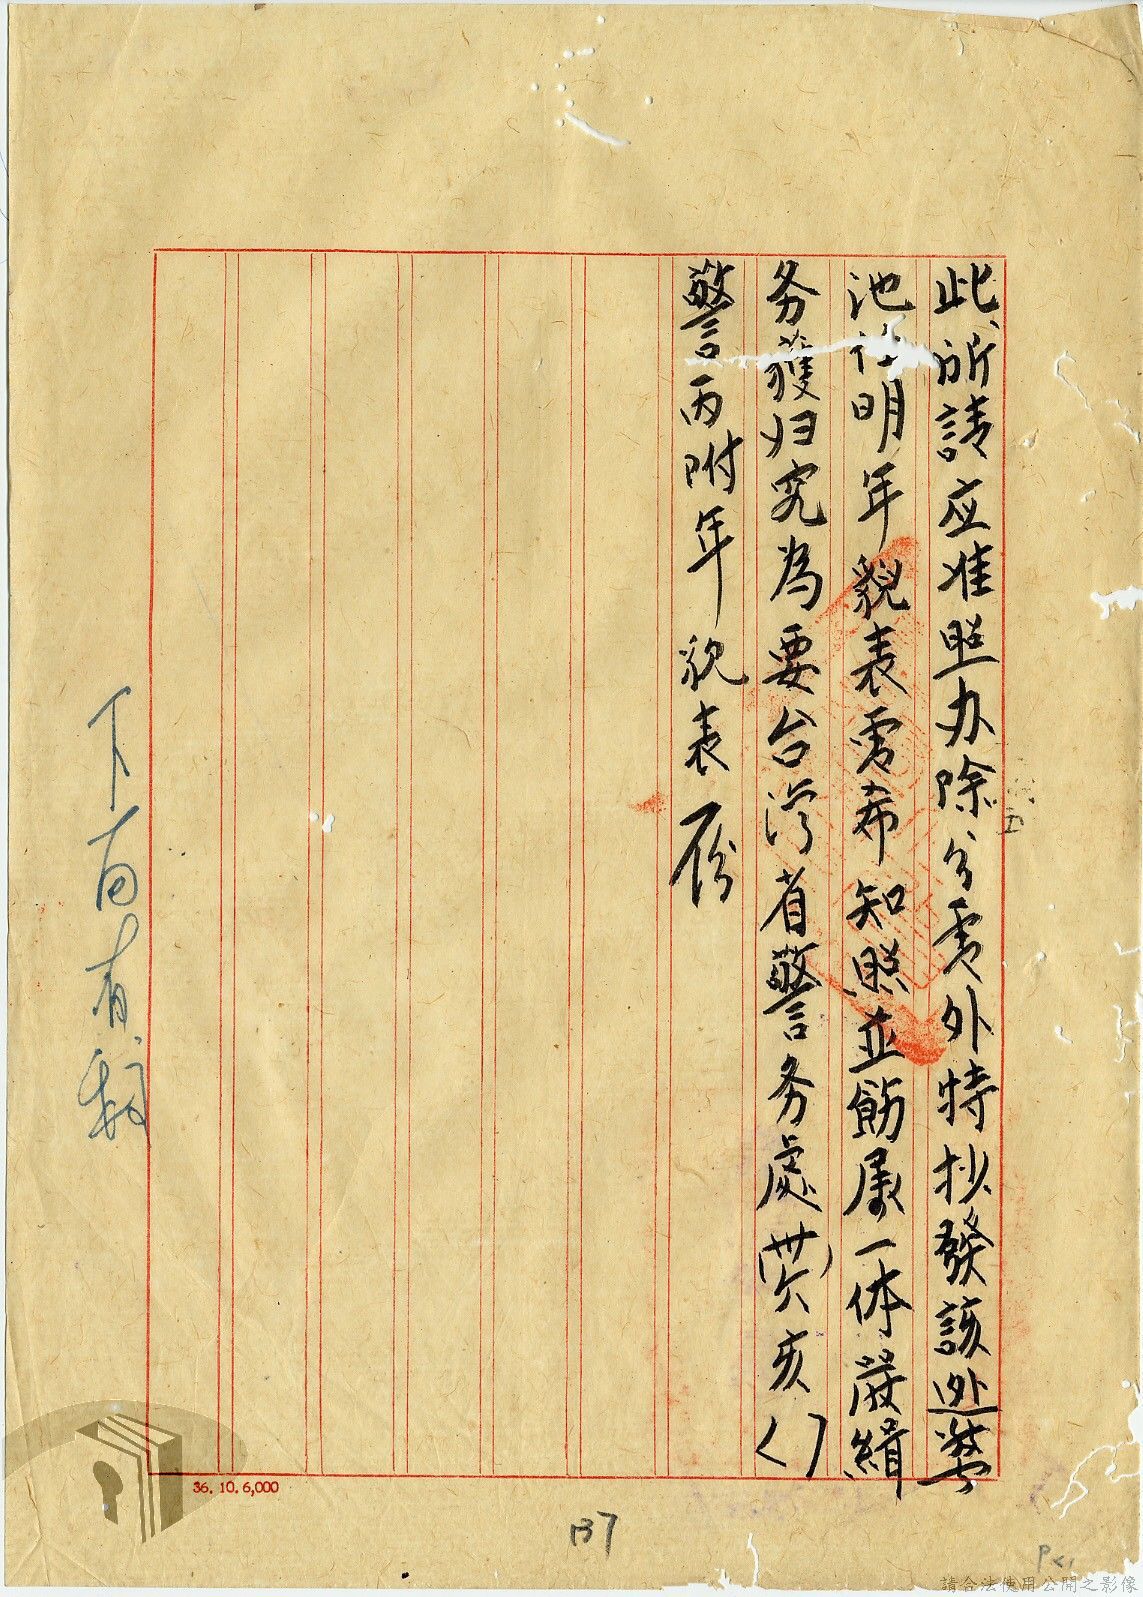 此所請应准照办除分電外特抄發該逃警
池 明年貌表電希知照並飭属一体嚴緝
务獲归究為要台湾省警务處(卅六)亥( )
警丙附年貌表一份
下面有
36.10.6,000
137
請合法使用公開之影像